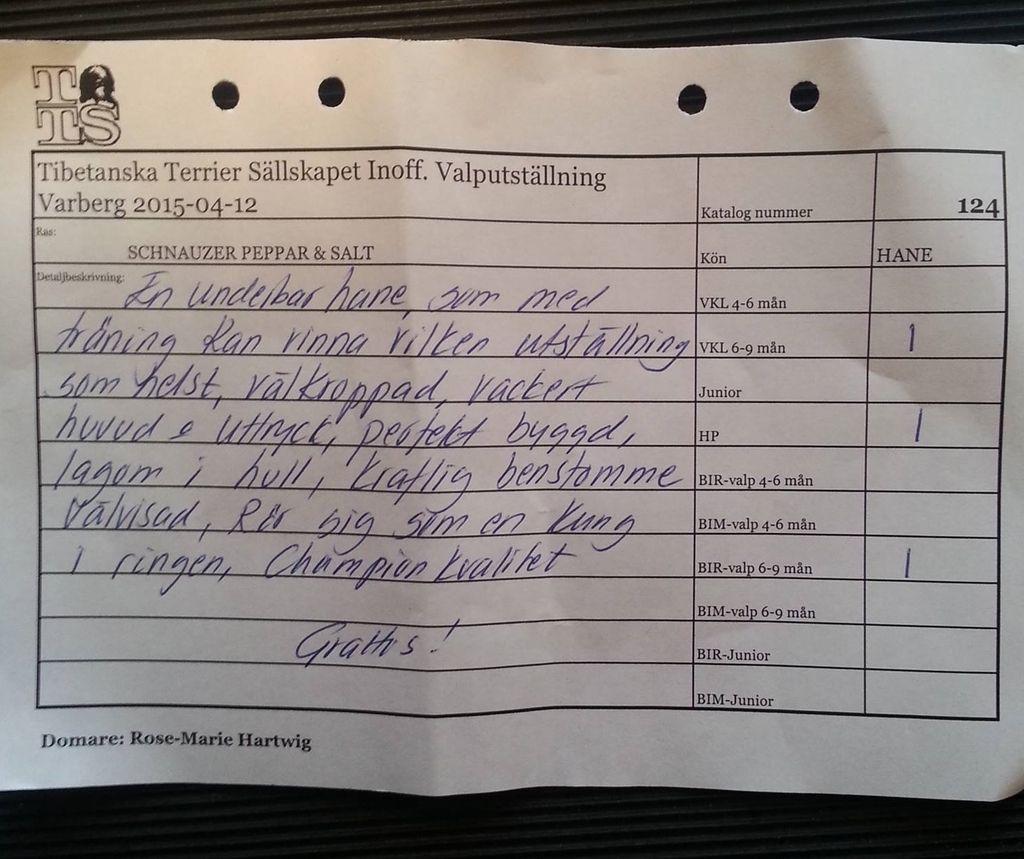 T
TS
Tibetanska Terrier Sällskapet Inoff. Valputställning
Varberg 2015-04-12
Katalog nummer 124
Ras:
SCHNAUZER PEPPAR & SALT
Kön HANE
Detaljbeskrivning:
En underbar hane, som med
VKL 4-6 mån
träning kan vinna vilken utställning
VKL 6-9 mån 1
som helst, välkroppad, vackert
Junior
huvud & uttryck, perfekt byggd,
HP 1
lagom i hull, kraftig benstomme
BIR-valp 4-6 mån
Välvisad, Rör sig som en kung
BIM-valp 4-6 mån
i ringen, Champion kvalitet
BIR-valp 6-9 mån 1
BIM-valp 6-9 mån
Grattis!
BIR-Junior
BIM-Junior
Domare: Rose-Marie Hartwig